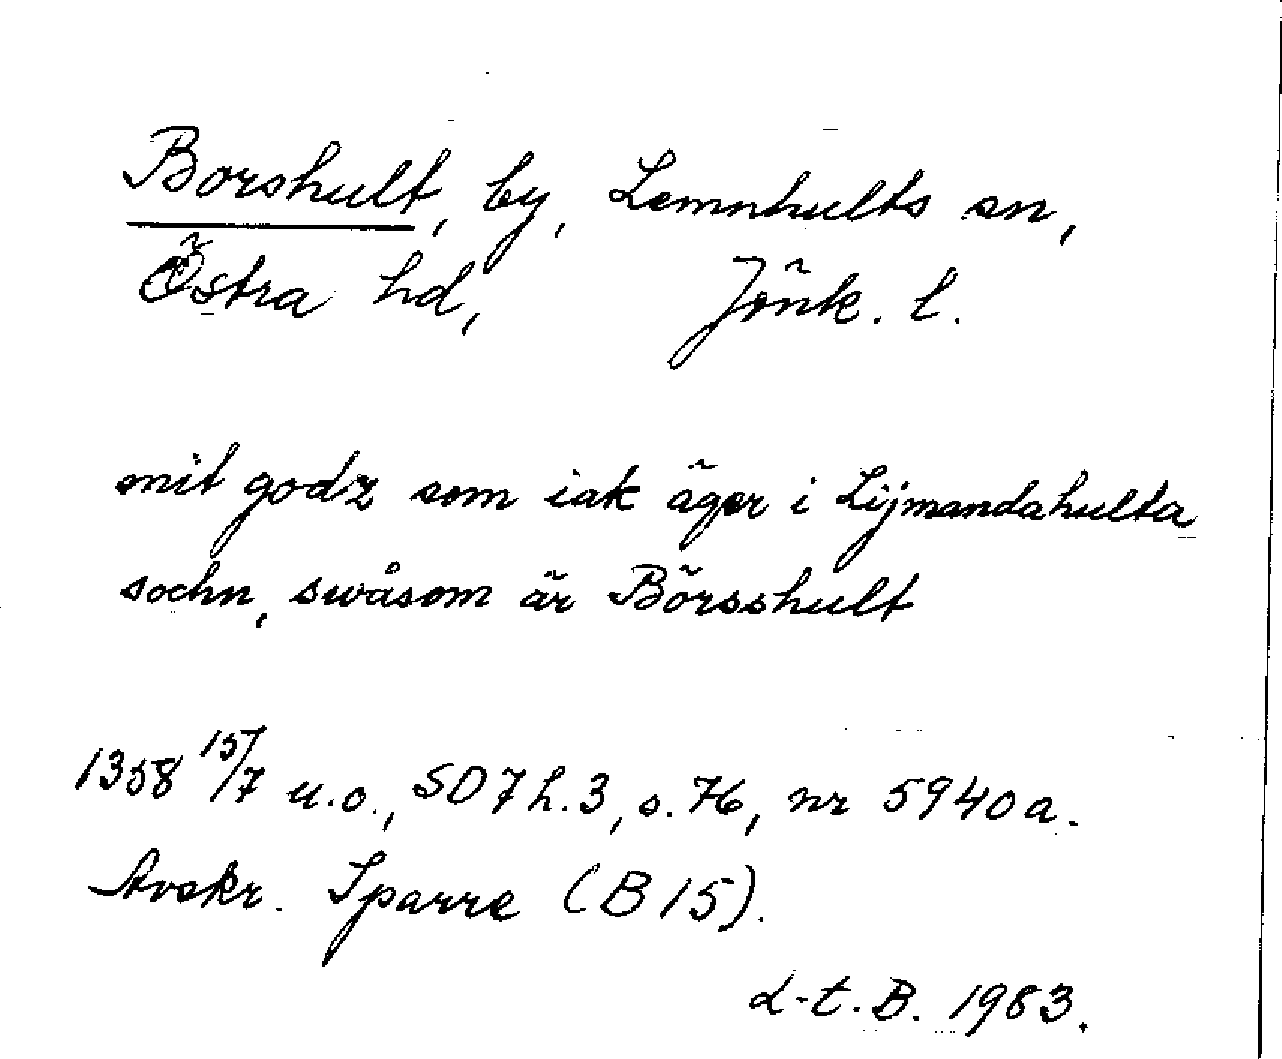 Borshult, by, Lemnhults sn,
Östra hd, Jönk. l.
mit godz som iak äger i Lijmandahulta
sochn, swåsom är Börsshult
1358 15/7 u.o., SD 7 h. 3, s. 76, nr 5940 a.
Avskr. Sparre (B 15).
L-t. B. 1983.